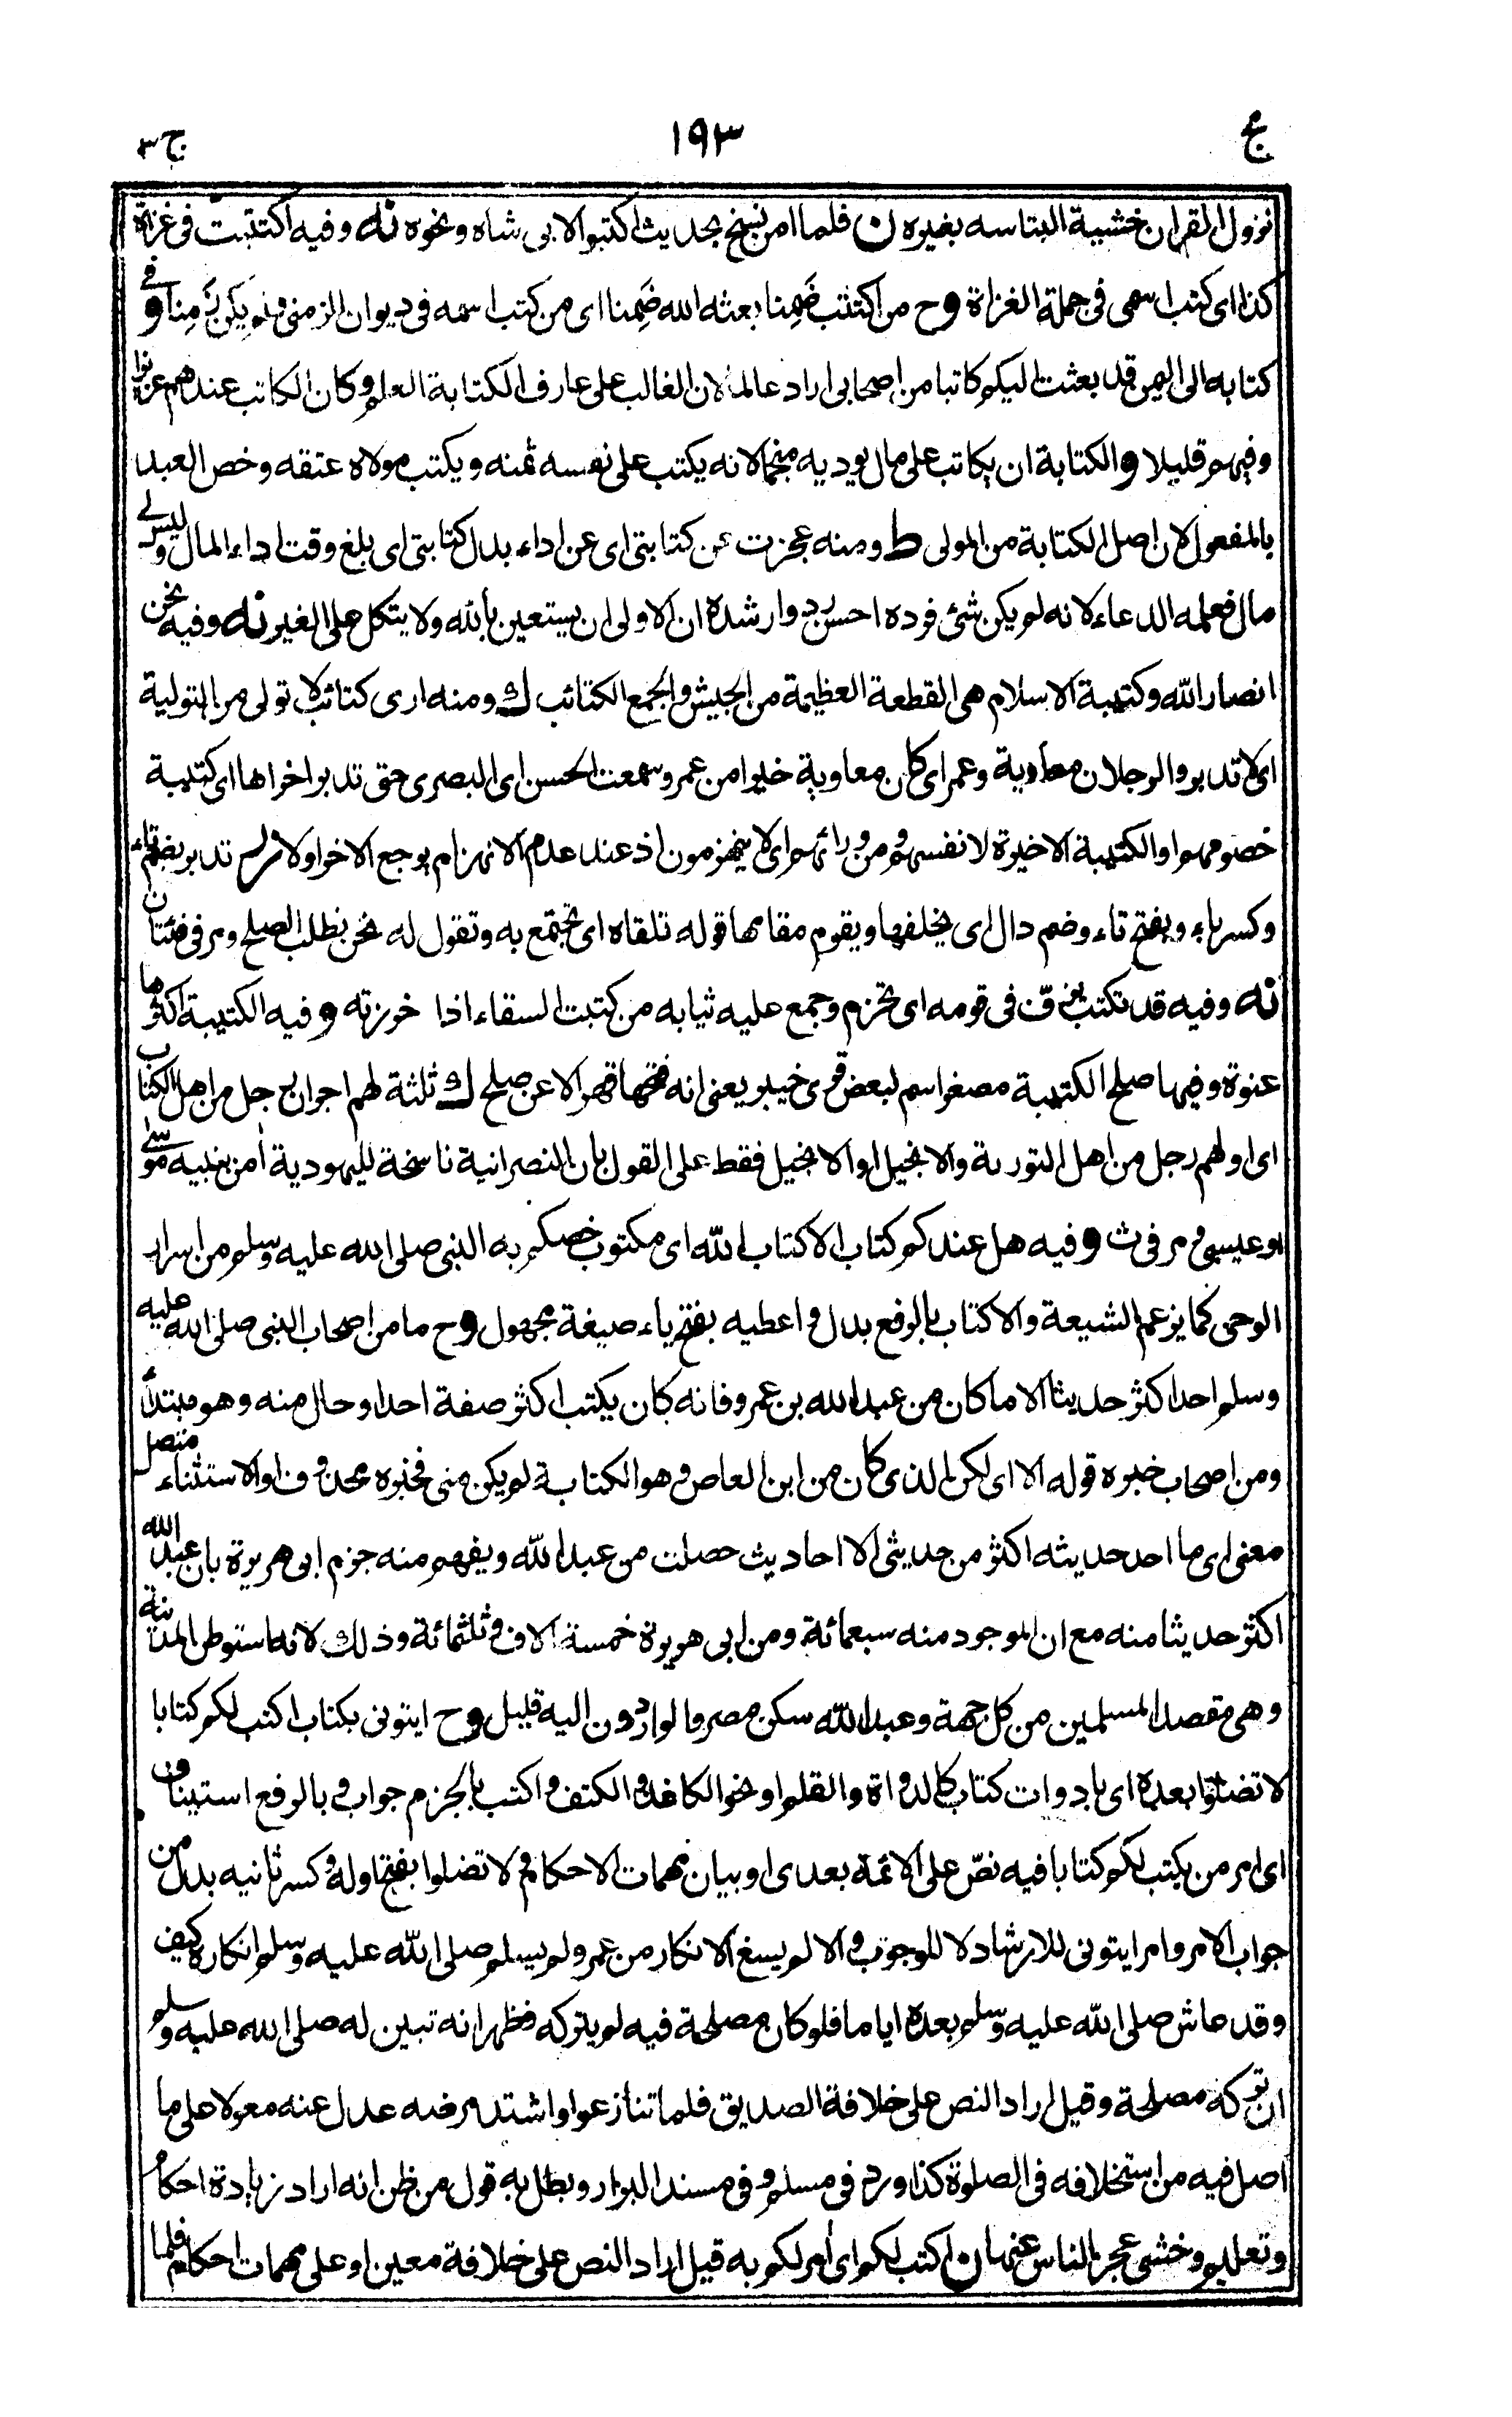 مج
١٩٣
ج ٣
نزول القران خشية التباسه بغيره ن فلما امن نسخ بحديث اكتبوا لابى شاه ونحوه نه وفيه اكتتبت فى غزاة
كذا اى كتب اسمى فى جملة الغزاة وح من اكتتب ضَمِنا بعثه الله ضَمِنا اى من كتب اسمه فى ديوان الزمنى ولم يكن زَمِنا و فى
كتابه الى اليمن قد بعثت اليكم كاتبا من اصحابى اراد عالما لان الغالب على عارف الكتابة العلم وكان الكاتب عندهم عزيزا
وفيهم قليلا والكتابة ان يكاتب على مال يوديه منجما لانه يكتب على نفسه ثمنه ويكتب مولاه عتقه وخص العبد
بالمفعول لان اصل الكتابة من المولى ط ومنه عجزت عن كتابتى اى عن اداء بدل كتابتى اى بلغ وقت اداء المال وليس لى
مال فعلمه الدعاء لانه لم يكن شئ فرده احسن رد وارشده ان الاولى ان يستعين بالله ولا يتكل على الغير نه وفيه نحن
انصار الله وكتيبة الاسلام هى القطعة العظيمة من الجيش والجمع الكتائب ك ومنه ارى كتائب لا تولى من التولية
اى لا تدبر والرجلان معاوية وعمر اى كان معاوية خيرا من عمر وسمعت الحسن اى البصرى حتى تدبر اخراها اى كتيبة
خصومهم او الكتيبة الاخيرة لانفسهم ومن ورائهم اى لا ينهزمون اذ عند عدم الانهزام يرجع الاخر اولا تدبر بضم تاء
وكسر باء وبفتح تاء وضم دال اى يخلفها ويقوم مقامها قوله تلقاه اى تجتمع به وتقول له نحن نطلب الصلح ومر فى فئتان
نه وفيه قد تكتب يزفّ فى قومه اى تحزم وجمع عليه ثيابه من كتبت السقاء اذا خرزته وفيه الكتيبة اكثرها
عنوة وفيها صلح الكتيبة مصغرا اسم لبعض قرى خيبر يعنى انه فتحها قهرا لا عن صلح ك ثلثة لهم اجران رجل من اهل الكتاب
اى اولهم رجل من اهل التورىة والانجيل او الانجيل فقط على القول بان النصرانية ناسخة لليهودية أمن بنبيه موسى
او عيسى ومر فى ث وفيه هل عندكم كتاب الا كتاب الله اى مكتوب خصكم به النبى صلى الله عليه وسلم من اسرار
الوحى كما يزعم الشيعة والا كتاب بالرفع بدل واعطيه بفتح ياء صيغة مجهول وح ما من اصحاب النبى صلى الله عليه
وسلم احد اكثر حديثا الا ما كان من عبد الله بن عمرو فانه كان يكتب اكثر صفة احد او حال منه وهو مبتدأ
ومن اصحاب خبره قوله الا اى لكن الذى كان من ابن العاص وهو الكتابة لم يكن منى فخبره محذوف او الاستثناء متصل
معنى اى ما احد حديثه اكثر من حديثى الا احاديث حصلت من عبد الله ويفهم منه جزم ابى هريرة بان عبد الله
اكثر حديثا منه مع ان الموجود منه سبعمائة ومن ابى هريرة خمسة الاف وثلثمائة وذلك لانه استوطن المدينة
وهى مقصد المسلمين من كل جهة وعبد الله سكن مصر والواردون اليه قليل وح ايتونى بكتاب اكتب لكم كتابا
لا تضلوا بعده اى بادوات كتاب كالدواة والقلم او نحو الكاغد والكتف واكتب بالجزم جواب وبالرفع استيناف
اى امر من يكتب لكم كتابا فيه نصّ على الائمة بعدى او بيان مهمات الاحكام ولا تضلوا بفتح اوله وكسر ثانيه بدل من
جواب الامر وامر ايتونى للارشاد لا للوجوب والا لم يسغ الانكار من عمر ولم يسلم صلى الله عليه وسلم انكاره كيف
وقد عاش صلى الله عليه وسلم بعده اياما فلو كان مصلحة فيه لم يتركه فظهر انه تبين له صلى الله عليه وسلم
ان تركه مصلحة وقيل اراد النص على خلافة الصديق فلما تنازعوا واشتد مرضه عدل عنه معولا على ما
اصل فيه من استخلافه فى الصلوة كذا ورد فى مسلم وفى مسند البزار وبطل به قول من ظن انه اراد زيادة احكام
وتعليم وخشى عجز الناس عنها ن اكتب لكم اى أمر لكم به قيل اراد النص على خلافة معين او على مهمات احكام فلما